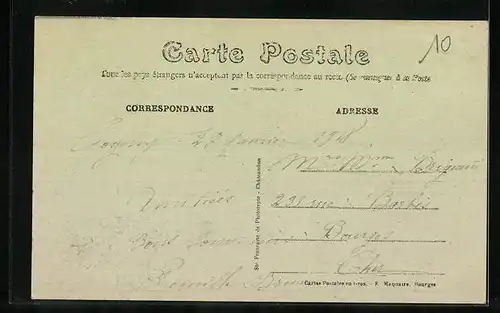 10
Carte Postale
Tous les pays étrangers n'acceptent pas la correspondance au recto (Se renseigner à la Poste
CORRESPONDANCE
ADRESSE
27 Janvier
Amitiés
Bons Souvenirs
rue Barbès
Bourges
Cher
Sté Française de Phototypie - Châteaudun
Cartes Postales en Gros. - F. Maquaire, Bourges